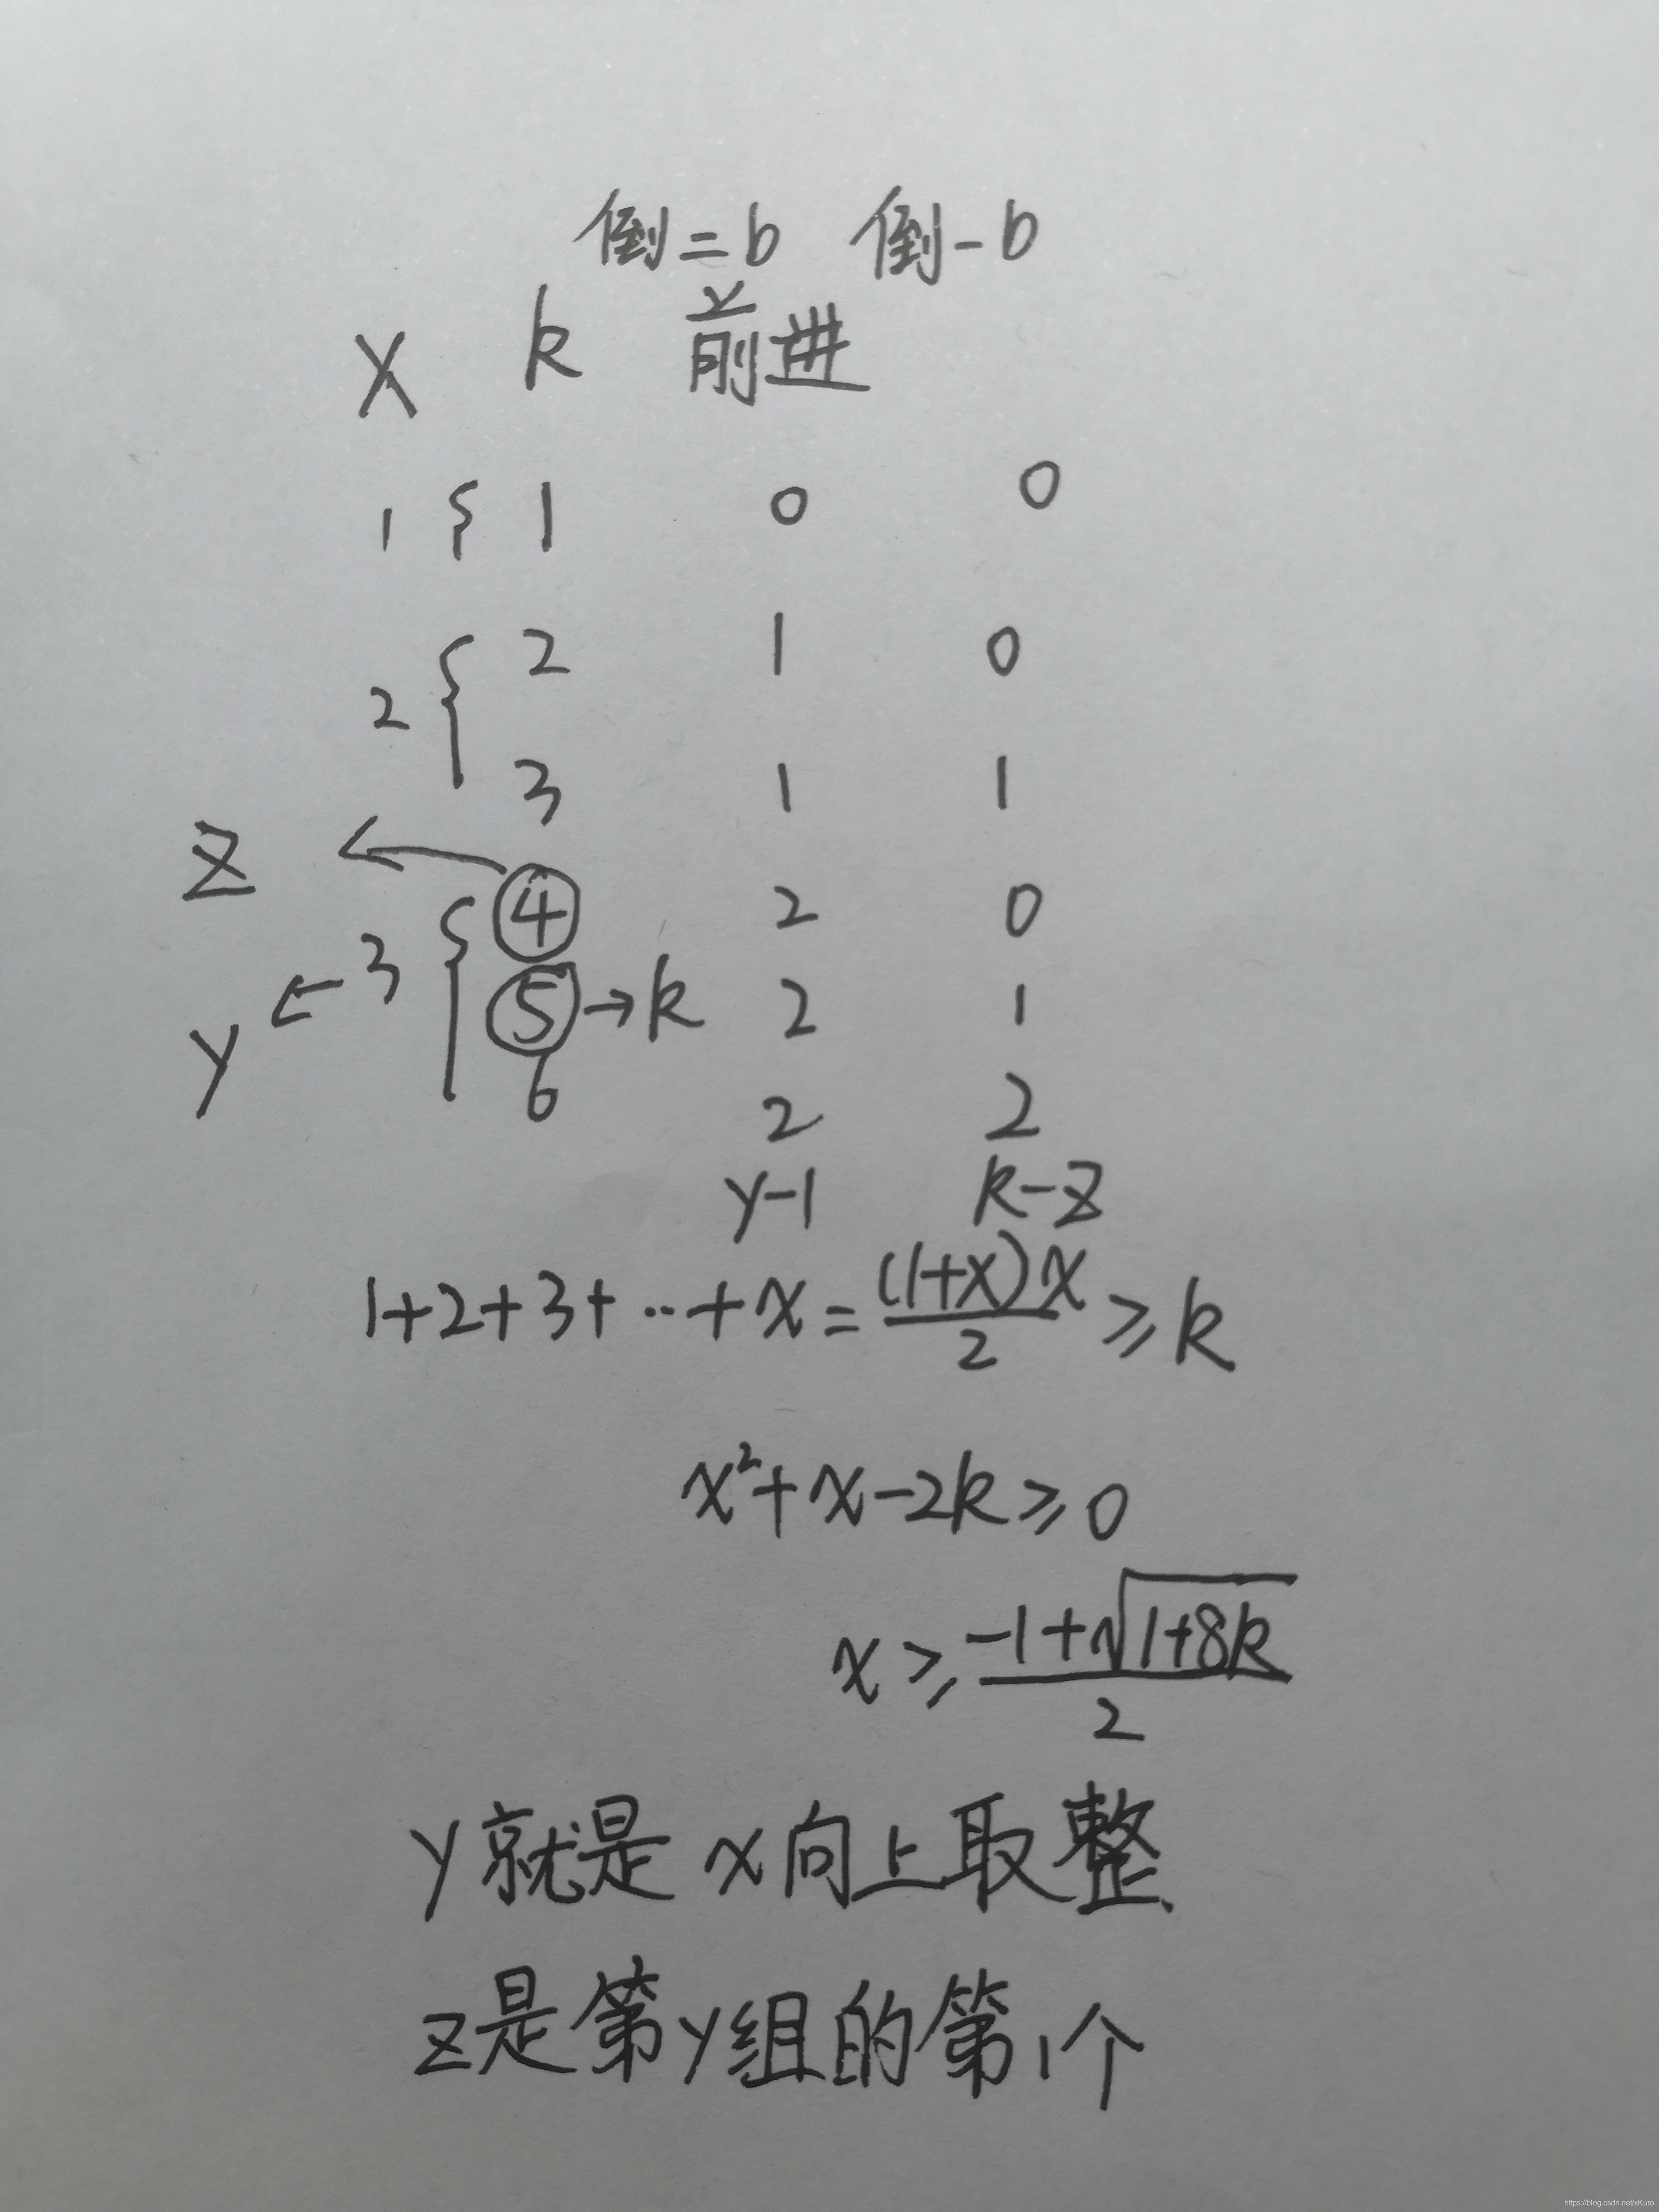 倒二b 倒一b
X k 前进
1 { 1 0 0
2 { 2 1 0
3 1 1
Z ← ④ 2 0
y ← 3 { ⑤ → k 2 1
6 2 2
y-1 k-z
1+2+3+··+x=(1+x)x/2≥k
x²+x-2k≥0
x≥(-1+√(1+8k))/2
y就是x向上取整
z是第y组的第1个
https://blog.csdn.net/xKuro